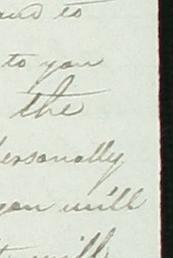 and to
to you
the
personally
you will
will